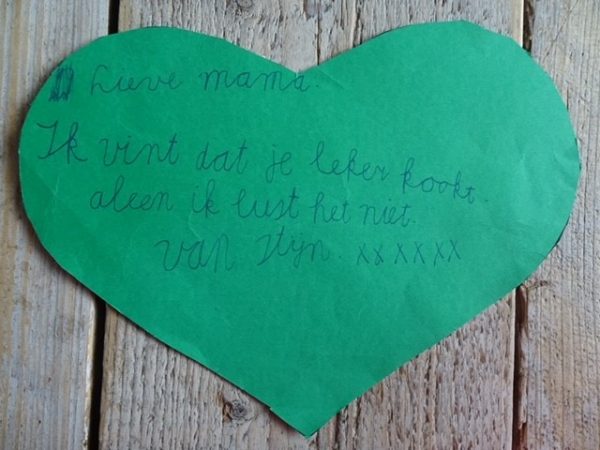 Lieve mama.
Ik vint dat je leker kookt.
aleen ik lust het niet.
van Stijn. xxxxxx